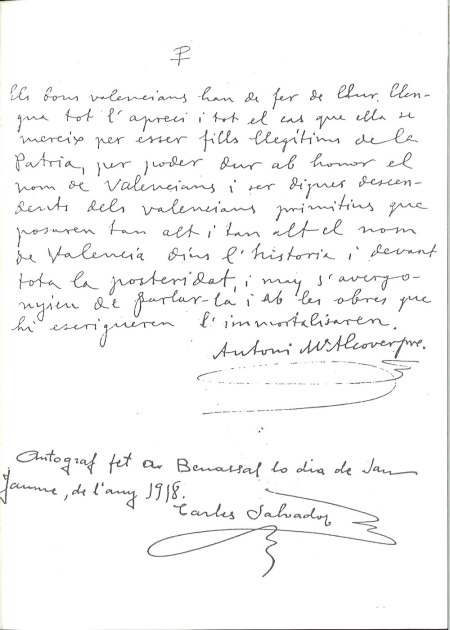 Els bons valencians han de fer de llur llen-
gua tot l'apreci i tot el cas que ella se
mereix per esser fills llegitims de la
Patria, per poder dur ab honor el
nom de Valencians i ser dignes descen-
dents dels valencians primitius que
posaren tan alt i tan alt el nom
de Valencia dins l'historia i devant
tota la posteridat, i may s'avergo-
nyien de parlar-la i ab les obres que
hi escrigueren l'immortalisaren.
Antoni Mª Alcover pre.
Autograf fet a Benassal lo dia de San
Jaume, de l'any 1918.
Carles Salvador